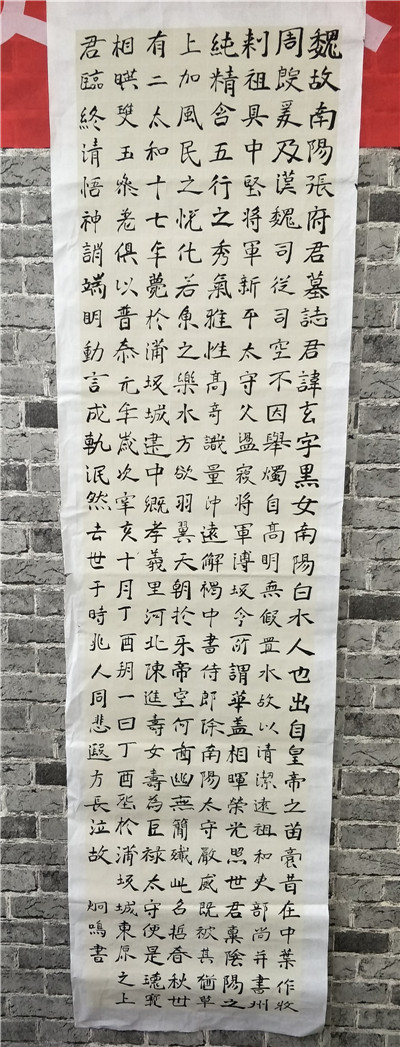 魏故南陽張府君墓誌君諱玄字黑女南陽白水人也出自皇帝之苗裔昔在中葉作牧
周殷爰及漢魏司徒司空不因舉燭自高明無假置水故以清潔遠祖和吏部尚并書州
刺祖具中堅將軍新平太守父盪寇將軍蒲坂令所謂華蓋相暉榮光照世君稟陰陽之
純精含五行之秀氣雅性高奇識量沖遠解褐中書侍郎除南陽太守嚴威既被其猶草
上加風民之悅化若魚之樂水方欲羽翼天朝抓牙帝室何啚幽無簡殲此名哲春秋卅
有二太和十七年薨於蒲坂城建中鄉孝義里河北陳進壽女壽為巨祿太守便是瑰寶
相暎雙玉參差俱以普泰元年歲次辛亥十月丁酉朔一日丁酉葬於蒲坂城東原之上
君臨終清悟神誚端明動言成軌泯然去世于時兆人同悲遐方長泣故
炯鳴書